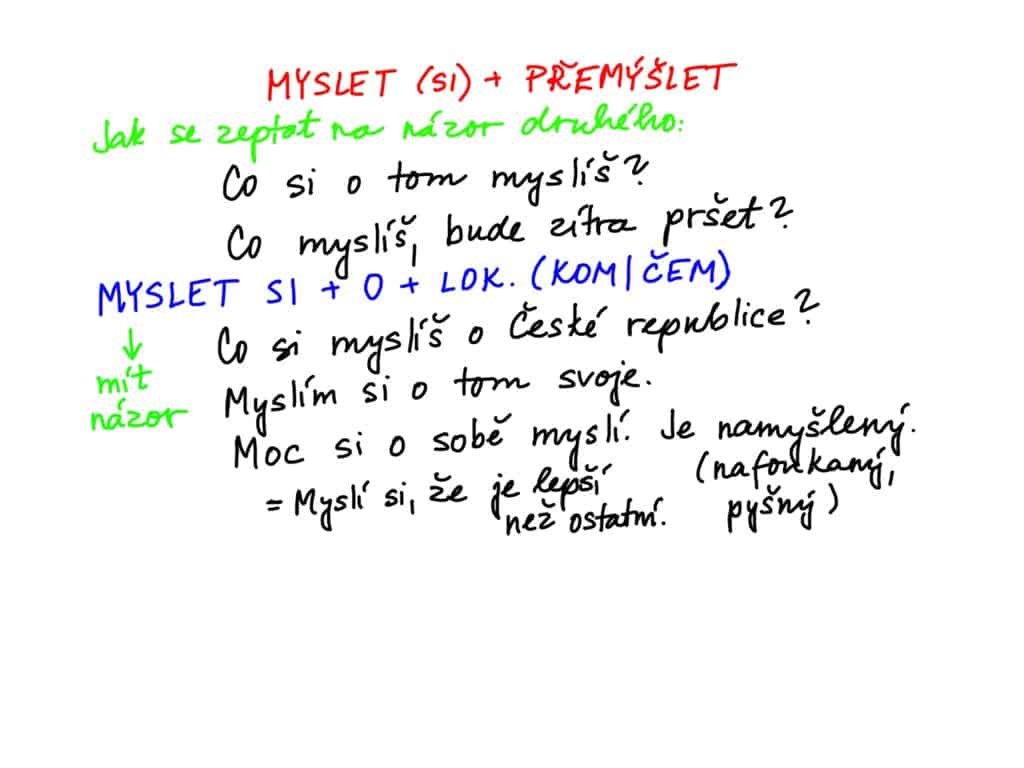 MYSLET (SI) + PŘEMÝŠLET
Jak se zeptat na názor druhého:
Co si o tom myslíš?
Co myslíš, bude zítra pršet?
MYSLET SI + O + LOK. (KOM/ČEM)
↓
mít
názor
Co si myslíš o České republice?
Myslím si o tom svoje.
Moc si o sobě myslí. Je namyšlený.
(nafoukaný,
pyšný)
= Myslí si, že je lepší
než ostatní.